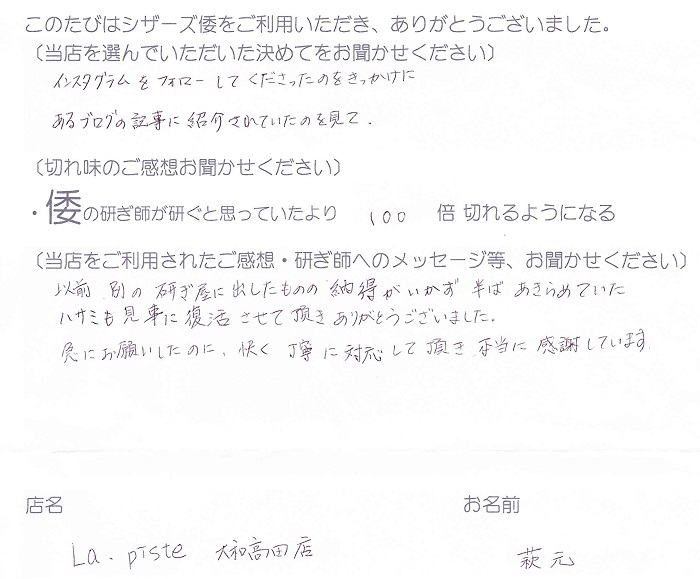 このたびはシザーズ倭をご利用いただき、ありがとうございました。
（当店を選んでいただいた決めてをお聞かせください）
インスタグラムをフォローしてくださったのをきっかけに
あるブログの記事に紹介されていたのを見て.
（切れ味のご感想お聞かせください）
・倭の研ぎ師が研ぐと思っていたより 100 倍 切れるようになる
（当店をご利用されたご感想・研ぎ師へのメッセージ等、お聞かせください）
以前 別の 研ぎ屋に出したものの 納得がいかず 半ば あきらめていた
ハサミも見事に復活させて頂きありがとうございました。
急にお願いしたのに、快く 丁寧に対応して頂き 本当に 感謝しています
店名 お名前
La・piste 大和高田店 萩元